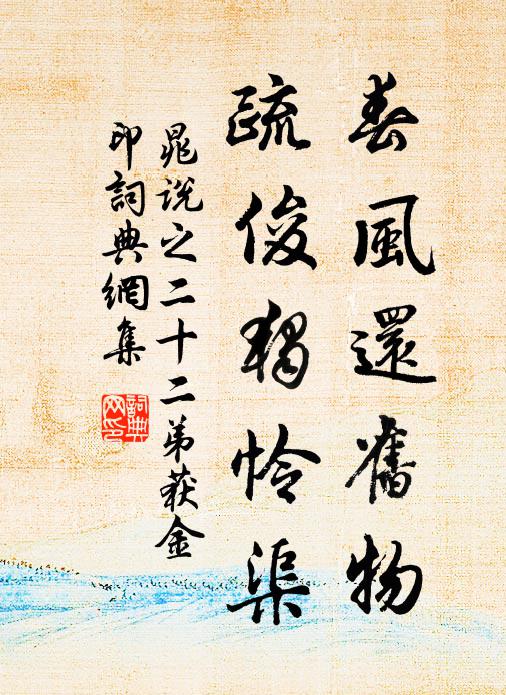 春風還舊物
疏俊獨怜渠
晁説之二十二弟获金
印詞典網集
詞典
网印